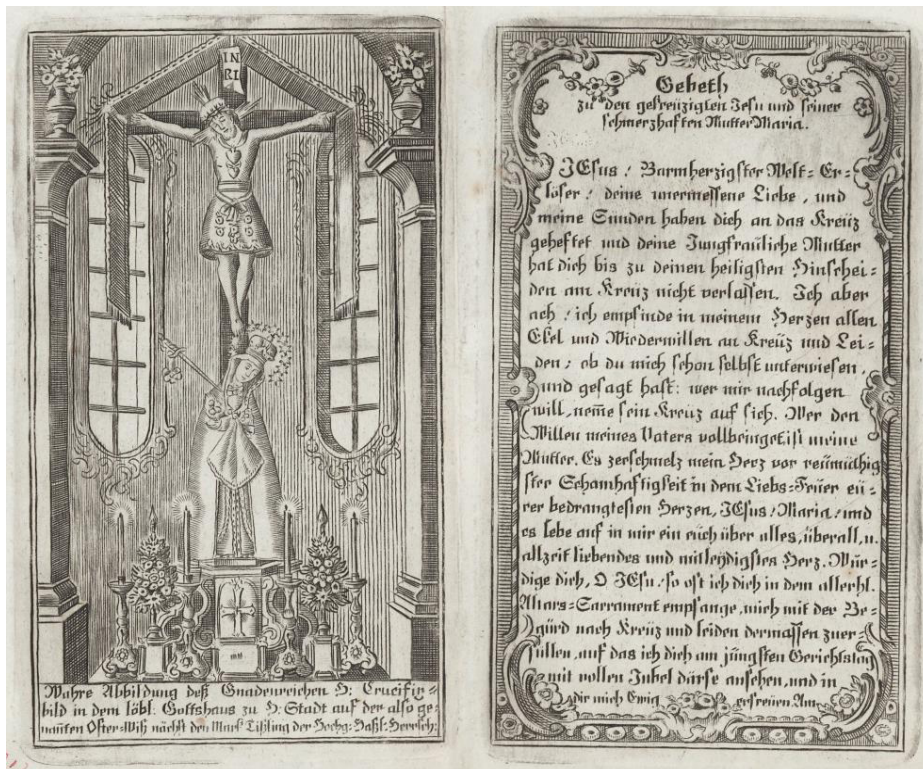 IN
RI
Wahre Abbildung deß Gnadenreichen H: Crucifix=
bild in dem löbl: Gottshaus zu H: Stadt auf der also ge=
nañten Oster=Wiß nächst den Mark Tißling der Hochg:
Gebeth
zu den gekreüzigten Jesu und seiner
schmerzhaften Mutter Maria.
JEsus! Barmherzigster Welt=Er=
löser! deine unermessene Liebe, und
meine Sünden haben dich an das Kreüz
geheftet und deine Jungfraüliche Mutter
hat dich bis zu deinen heiligsten Hinschei=
den am Kreüz nicht verlassen. Ich aber
ach! ich empfinde in meinem Herzen allen
Ekel und Wiederwillen an Kreüz und Lei=
den; ob du mich schon selbst unterwiesen,
und gesagt hast: wer mir nachfolgen
will, neme sein Kreüz auf sich. Wer den
Willen meines Vaters vollbringet ist meine
Mutter. Es zerschmelz mein Herz vor reümüthig
ster Schamhaftigkeit in dem Liebs=Feüer eü=
rer bedrangtesten Herzen, JEsus! Maria! und
es lebe auf in mir ein eüch über alles, überall, u.
allzeit liebendes und mitleydigstes Herz. Wür=
dige dich, O JEsu! so oft ich dich in dem allerhl.
Altars=Sacrament empfange, mich mit der Be=
gürd nach Kreüz und leiden dermassen zuer=
füllen, auf das ich dich am jüngsten Gerichtstag
mit vollen Jubel därfe ansehen, und in
dir mich Ewig erfreüen. Am.